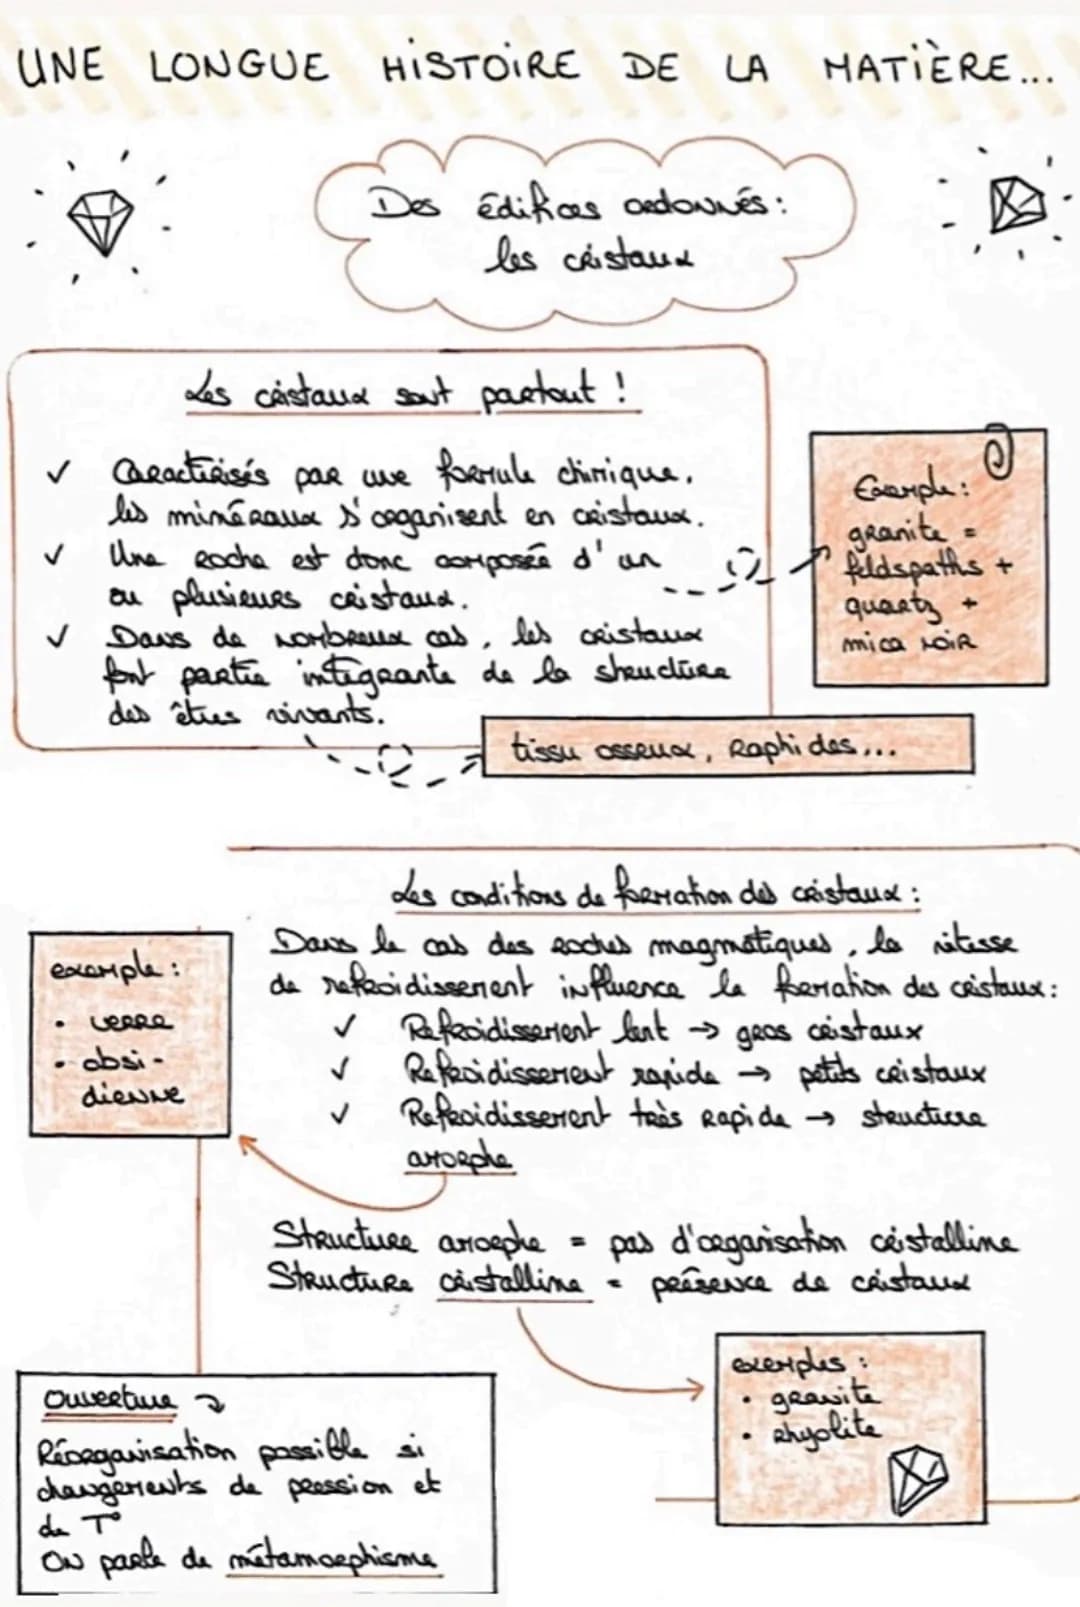 UNE LONGUE HISTOIRE DE LA MATIÈRE...
Des édifices ordonnés :
les cristaux
Les cristaux sont partout !
✓ Caractérisés par une formule chimique,
les minéraux s'organisent en cristaux.
✓ Une roche est donc composée d'un
ou plusieurs cristaux.
✓ Dans de nombreux cas, les cristaux
font partie intégrante de la structure
des êtres vivants.
Exemple :
granite =
feldspaths +
quartz +
mica noir
tissu osseux, Raphides...
Les conditions de formation des cristaux :
Dans le cas des roches magmatiques, la vitesse
de refroidissement influence la formation des cristaux :
✓ Refroidissement lent → gros cristaux
✓ Refroidissement rapide → petits cristaux
✓ Refroidissement très rapide → structure
amorphe
exemple :
• verre
• obsi-
dienne
Structure amorphe = pas d'organisation cristalline
Structure cristalline = présence de cristaux
exemples :
• granite
• rhyolite
Ouverture
Réorganisation possible si
changements de pression et
de T°
On parle de métamorphisme